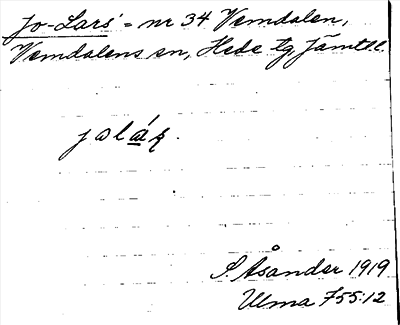 Jo-Lars' = nr 34 Vemdalen,
Vemdalens sn, Hede tg Jämtl.l.
jolák.
S. Åsander 1919
Ulma 755:12